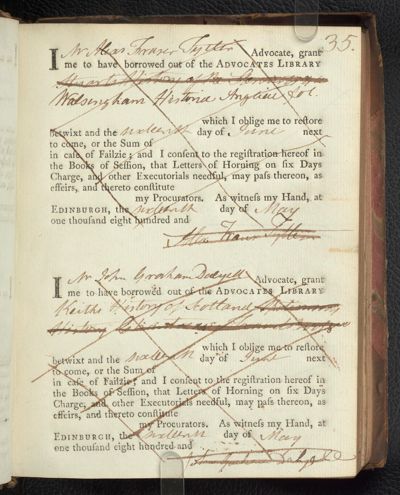 35.
I Mr Alexr Fraser Tytler Advocate, grant
me to have borrowed out of the ADVOCATES LIBRARY
History of the
Walsingham Historia Angliae fol.
which I oblige me to reſtore
betwixt and the day of June next
to come, or the Sum of
in caſe of Failzie; and I conſent to the regiſtration hereof in
the Books of Seſſion, that Letters of Horning on ſix Days
Charge, and other Executorials needful, may paſs thereon, as
effeirs, and thereto conſtitute
my Procurators. As witneſs my Hand, at
EDINBURGH, the day of May
one thouſand eight hundred and
Alexr Fraser Tytler
I Mr John Graham Dalyell Advocate, grant
me to have borrowed out of the ADVOCATES LIBRARY
Keiths History of Scotland
History
which I oblige me to reſtore
betwixt and the day of June next
to come, or the Sum of
in caſe of Failzie; and I conſent to the regiſtration hereof in
the Books of Seſſion, that Letters of Horning on ſix Days
Charge, and other Executorials needful, may paſs thereon, as
effeirs, and thereto conſtitute
my Procurators. As witneſs my Hand, at
EDINBURGH, the day of May
one thouſand eight hundred and
John Graham Dalyell